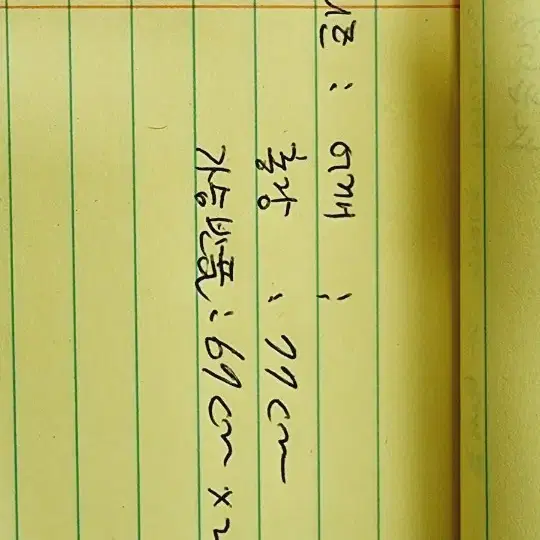 : 어깨 :
총장 : 77cm
가슴반품 : 69cm x 2